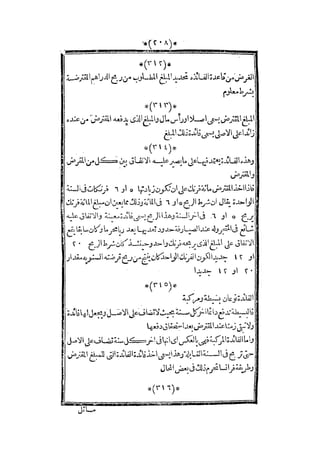 *(٢٠٨)*
*(٣١٢)*
الغرض من قاعدة الفائدة تحديد المبلغ المطلوب من ربح الدراهم المقترضة
بشرط معلوم
*(٣١٣)*
المبلغ المقترض يسمى أصلا أو رأس مال والمبلغ الذى يدفعه المقترض من عنده
زائدا على الاصلى يسمى فائدة ذلك المبلغ
*(٣١٤)*
وهذه الفائدة يعتمد فيها على ما يصير عليه الاتفاق بين كل من المقرض
والمقترض
فاذا أخذ المقترض مائة فرنك على ان تكون زيادتها ٥ أو ٦ فرنكات فى السنة
الواحدة يقال ان شرط الربح ٥ أو ٦ فى المائة وذلك مما يعين ان مبلغ المائة فرنك
يربح ٥ أو ٦ فى آخر السنة وهذا الربح يسمى فائدة معينة والاتفاق عليه
شائع فى المتجر وله عند الصيارفة حدود تعديها يعد ربا محرما وكان سابقا يقع
الاتفاق على المبلغ الذى يربحه فرنك واحد وحينئذ كان شرط الربح ٢٠
أو ١٢ جديدا لكون الفرنك الواحد كان ينتج من ربح قرضته السنوية مقدار
٢٠ أو ١٢ جديدا
*(٣١٥)*
الفائدة نوعان بسيطة ومركبة
فالبسيطة تدفع دائما آخر كل سنة بحيث لا تضاف على الاصل ويجعل لها فائدة
ولا تبقى زمنا عند المقترض بعد استحقاق دفعها
وأما الفائدة المركبة فهى بالعكس أى انها فى آخر كل سنة تضاف على الاصل
حتى تربح فى السنة القابلة وهذا يسمى أخذ فائدة الفائدة التى للمبلغ المقترض
وطريقة فرانسا تحرم ذلك فى بعض الحال
*(٣١٦)*
مسائل